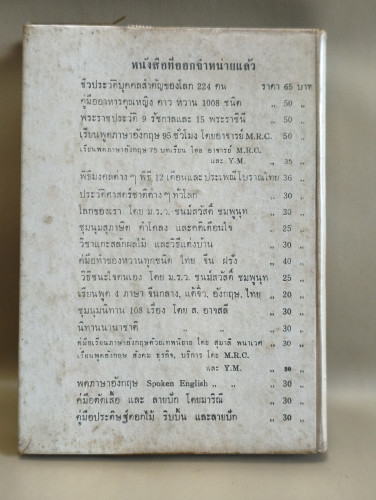 หนังสือที่ออกจำหน่ายแล้ว
ชีวประวัติบุคคลสำคัญของโลก 224 คน ราคา 65 บาท
คู่มืออาหารคุณหญิง คาว หวาน 1008 ชนิด „ 50 „
พระราชประวัติ 9 รัชกาลและ 15 พระราชินี „ 50 „
เรียนพูดภาษาอังกฤษ 95 ชั่วโมง โดยอาจารย์ M.R.C. „ 50 „
เรียนพูดภาษาอังกฤษ 75 บทเรียน โดย อาจารย์ M.R.C.
และ Y.M. „ 35 „
พิธีมงคลต่าง ๆ พิธี 12 เดือนและประเพณีโบราณไทย 36 „
ประวัติศาสตร์ชาติต่าง ๆ ทั่วโลก „ 30 „
โลกของเรา โดย ม.ร.ว. ชนม์สวัสดิ์ ชมพูนุท „ 30 „
ชุมนุมสุภาษิต คำโคลง และคติเตือนใจ „ 25 „
วิชาแกะสลักผลไม้ และวิธีแต่งบ้าน „ 30 „
คู่มือทำของหวานทุกชนิด ไทย จีน ฝรั่ง „ 40 „
วิธีชนะใจคนเอง โดย ม.ร.ว. ชนม์สวัสดิ์ ชมพูนุท „ 25 „
เรียนพูด 4 ภาษา จีนกลาง, แต้จิ๋ว, อังกฤษ, ไทย „ 20 „
ชุมนุมนิทาน 108 เรื่อง โดย ส. อาจสลี „ 30 „
นิทานนานาชาติ „ „ 30 „
คู่มือเรียนภาษาอังกฤษด้วยเทพนิยาย โดย สุมาลี พนาเวศ „ 30 „
เรียนพูดอังกฤษ สังคม ธุรกิจ, บริการ โดย M.R.C.
และ Y.M. „ 30 „
พูดภาษาอังกฤษ Spoken English „ „ „ 30 „
คู่มือตัดเสื้อ และ ลายปัก โดยมาริณี „ 30 „
คู่มือประดิษฐ์ดอกไม้ ริบบิ้น และลายปัก „ 30 „